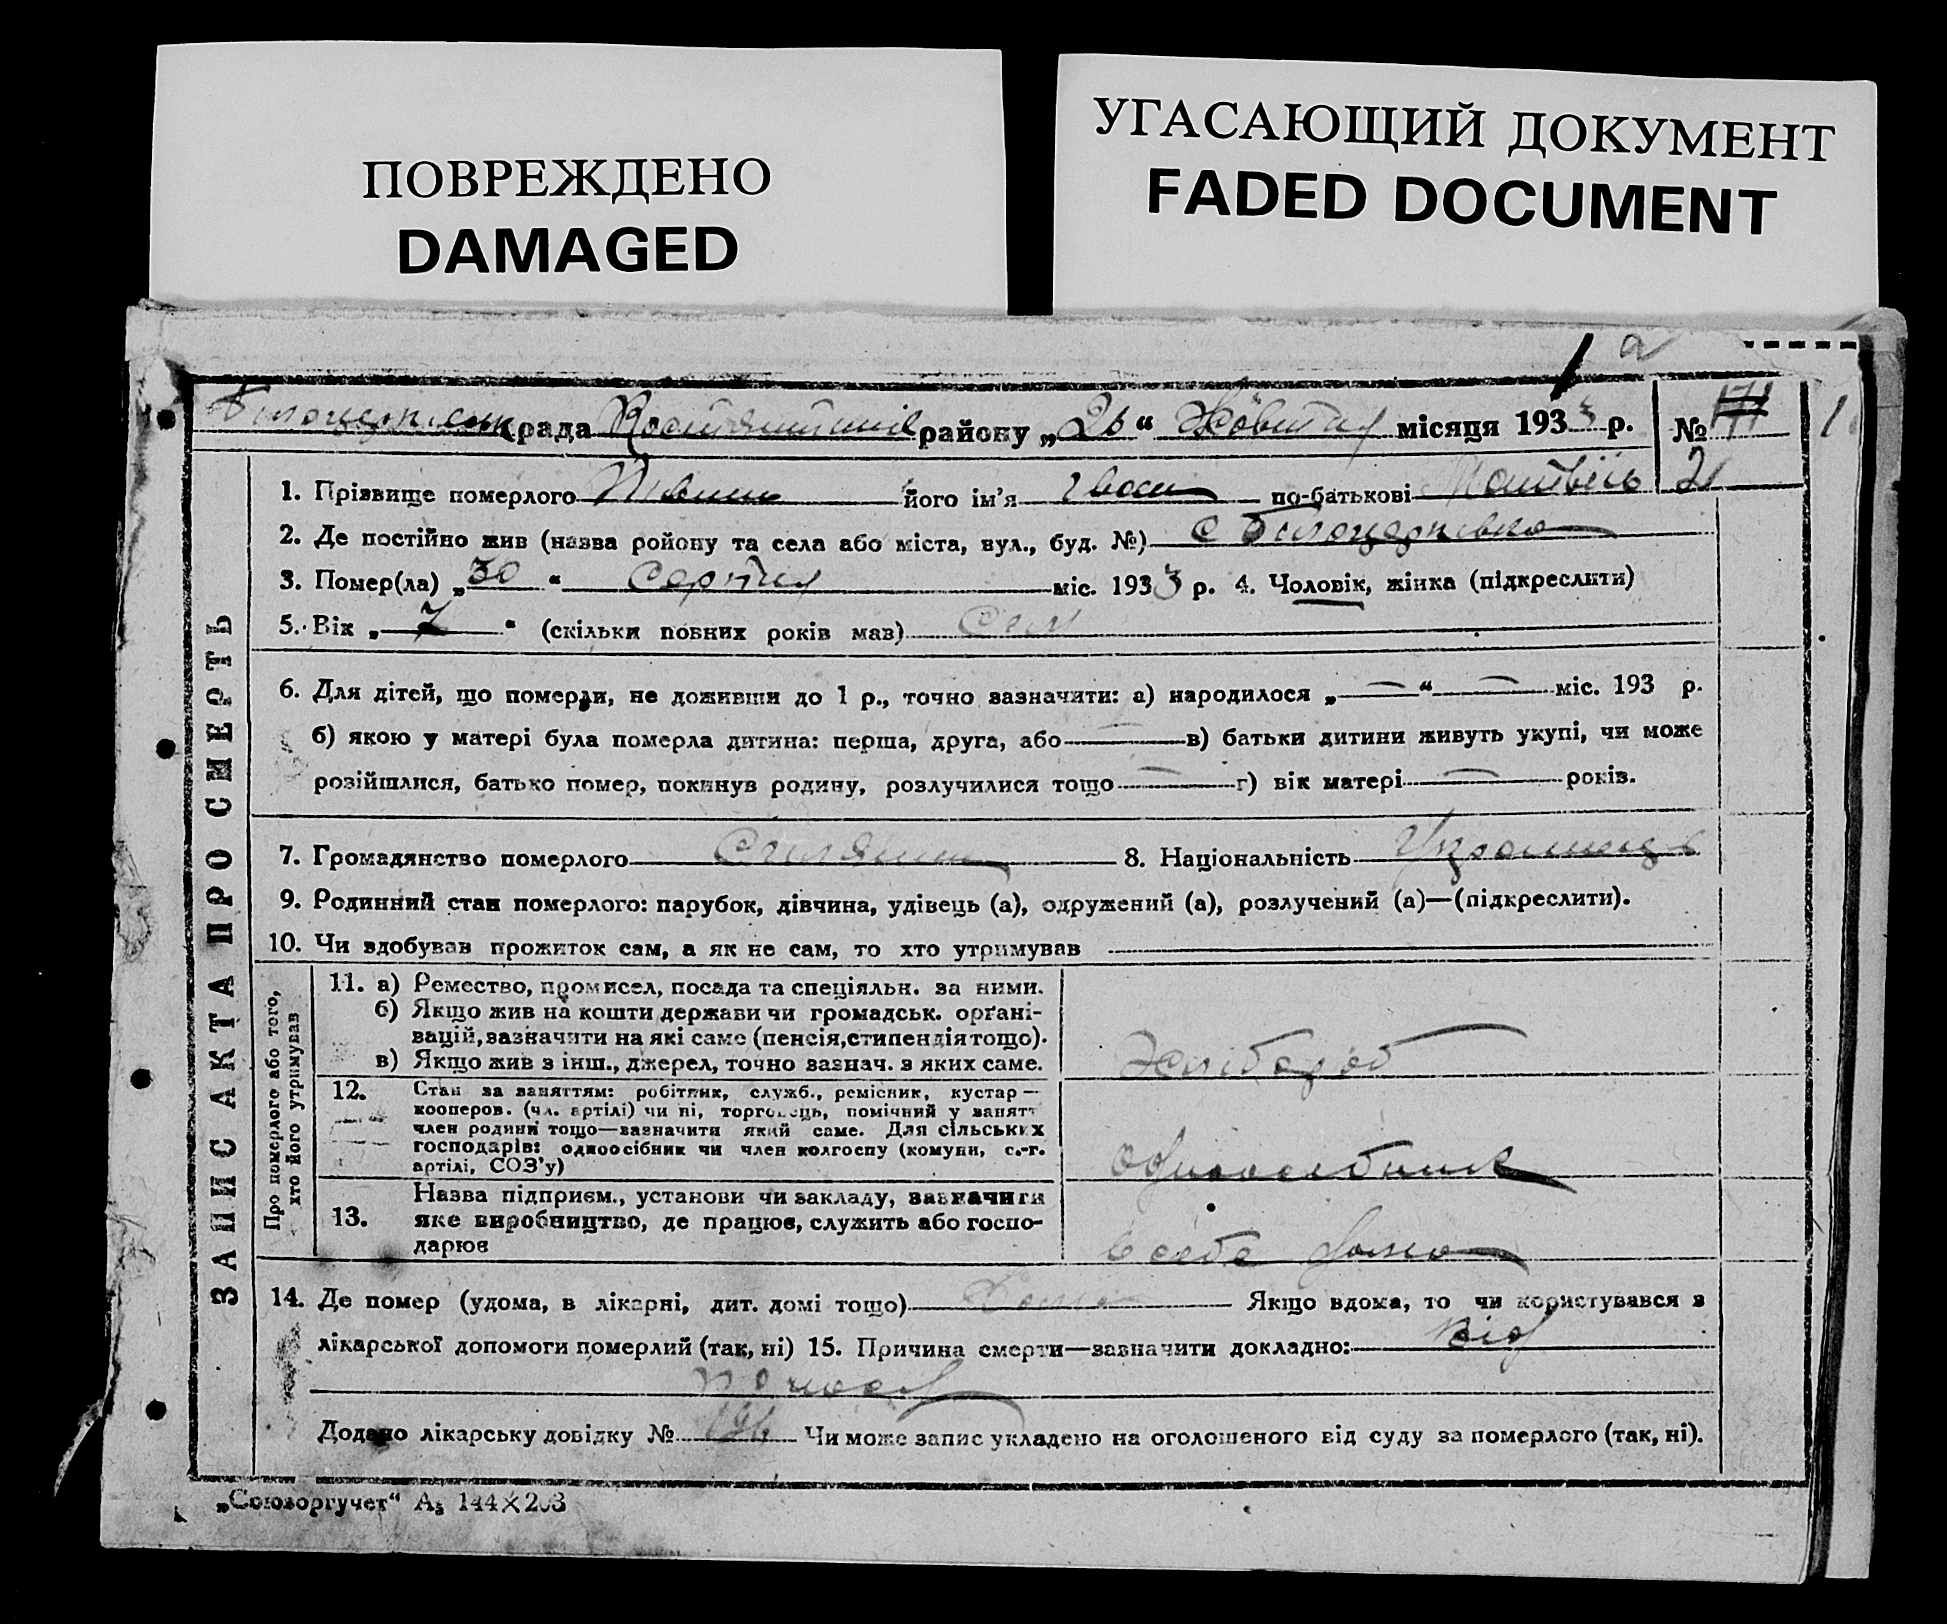 ПОВРЕЖДЕНО
DAMAGED
УГАСАЮЩИЙ ДОКУМЕНТ
FADED DOCUMENT
рада району „26“ Жовтня місяця 1933 р. №
1. Прізвище померлого його ім’я по-батькові 21
2. Де постійно жив (назва ройону та села або міста, вул., буд. №) с Білоцерківка
3. Помер(ла) „30“ Серпня міс. 1933 р. 4. Чоловік, жінка (підкреслити)
5. Вік „7“ (скільки повних років мав) Сем
6. Для дітей, що померли, не доживши до 1 р., точно зазначити: а) народилося „—“ — міс. 193 р.
б) якою у матері була померла дитина: перша, друга, або — в) батьки дитини живуть укупі, чи може
розійшлися, батько помер, покинув родину, розлучилися тощо — г) вік матері — років.
7. Громадянство померлого Селянин 8. Національність Українець
9. Родинний стан померлого: парубок, дівчина, удівець (а), одружений (а), розлучений (а)—(підкреслити).
10. Чи здобував прожиток сам, а як не сам, то хто утримував
ЗАПИС АКТА ПРО СМЕРТЬ
Про померлого або того,
хто його утримував
11. а) Ремество, промисел, посада та спеціяльн. за ними.
б) Якщо жив на кошти держави чи громадськ. орґані-
зацій, зазначити на які саме (пенсія, стипендія тощо).
в) Якщо жив з інш., джерел, точно зазнач. з яких саме.
Хлібороб
12. Стан за заняттям: робітник, служб., ремісник, кустар—
кооперов. (чл. артілі) чи ні, торговець, помічний у занятт
член родини тощо—зазначити який саме. Для сільських
господарів: одноосібник чи член колгоспу (комуни, с.-г.
артілі, СОЗ’у)
Одноосібник
13. Назва підприєм., установи чи закладу, зазначити
яке виробництво, де працює, служить або госпо-
дарює
в себе дома
14. Де помер (удома, в лікарні, дит. домі тощо) Дома Якщо вдома, то чи користувався з
лікарської допомоги померлий (так, ні) 15. Причина смерти—зазначити докладно: від
поноса
Додано лікарську довідку № Чи може запис укладено на оголошеного від суду за померлого (так, ні).
„Союзоргучет“ А₅ 144×203